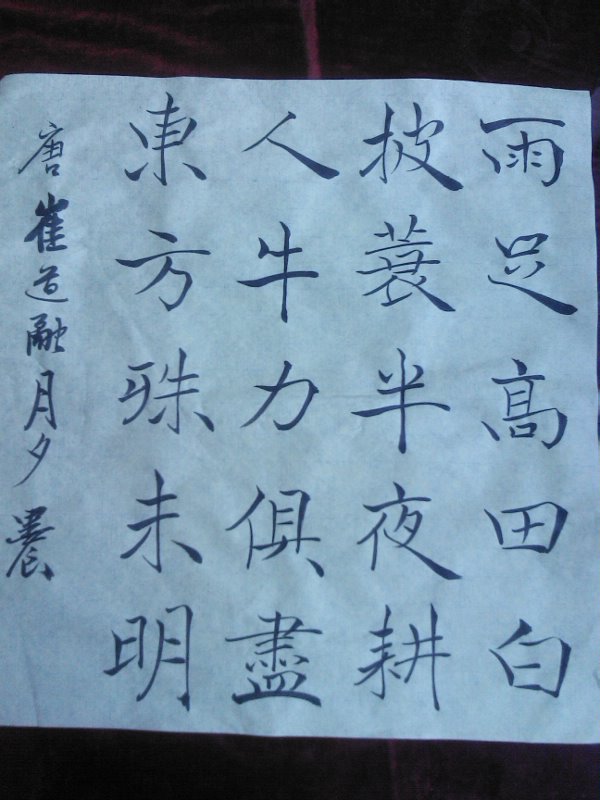 雨足髙田白
披蓑半夜耕
人牛力俱盡
東方殊未明
唐崔道融月夕